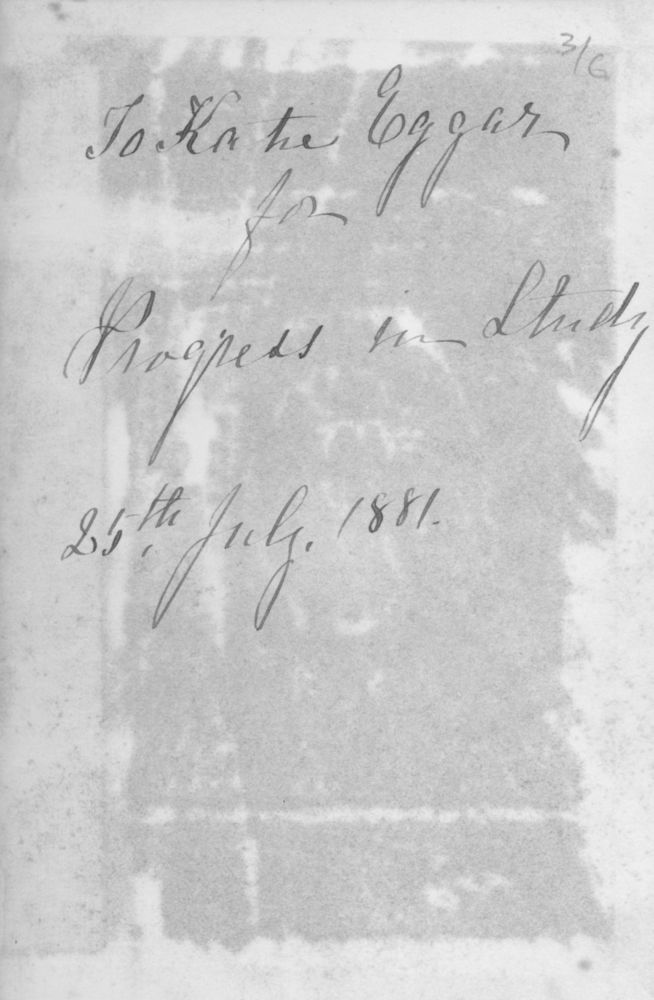 3/6
To Katie Eggar
for
Progress in Study
25th July. 1881.